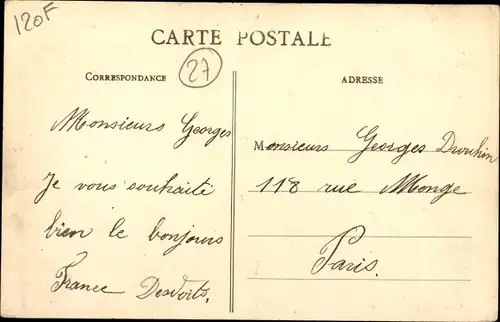 120F
CARTE POSTALE
27
CORRESPONDANCE
Monsieurs Georges
Je vous souhaite
bien le bonjours
France Desvoits,
ADRESSE
Monsieurs Georges Drouhin
118 rue Monge
Paris.